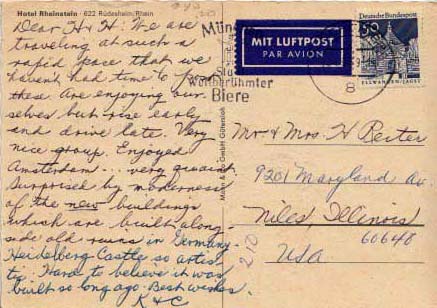 Hotel Rheinstein · 622 Rüdesheim/Rhein
Dear H & H: We are
traveling at such a
rapid pace that we
haven't had time to
these. Are enjoying our-
selves but rise early
and drive late. Very
nice group. Enjoyed
Amsterdam... very quaint.
Surprised by modernness
of the new buildings
which are built along
side old ruins in Germany.
Heidelberg Castle so artis-
tic. Hard to believe it was
built so long ago. Best wishes.
K & C
Weltberühmter
Biere
MIT LUFTPOST
PAR AVION
Deutsche Bundespost
50
ELLWANGEN/JAGST
8
Mr & Mrs. H Reiter
9201 Maryland Av.
Niles, Illinois
60648
USA
210